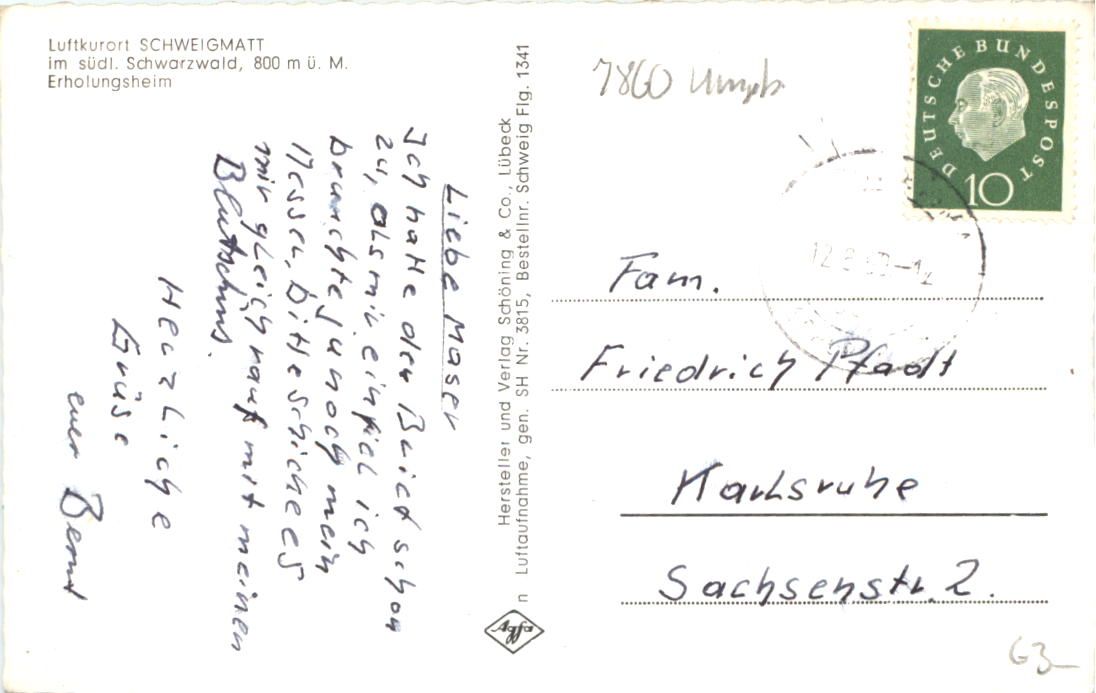 Luftkurort SCHWEIGMATT
im südl. Schwarzwald, 800 m ü. M.
Erholungsheim
Liebe Maser
Ich hatte den Brief schon
zu, als mir einfiel ich
brauchte ja noch mein
Messer, bitte schicke es
mir gleich rauf mit meinen
Herzliche
Grüse
euer Bernd
Hersteller und Verlag Schöning & Co., Lübeck
n Luftaufnahme, gen. SH Nr. 3815, Bestellnr. Schweig Flg. 1341
Agfa
7860
DEUTSCHE BUNDESPOST
10
Fam.
Friedrich Pfadt
Karlsruhe
Sachsenstr. 2.
G3